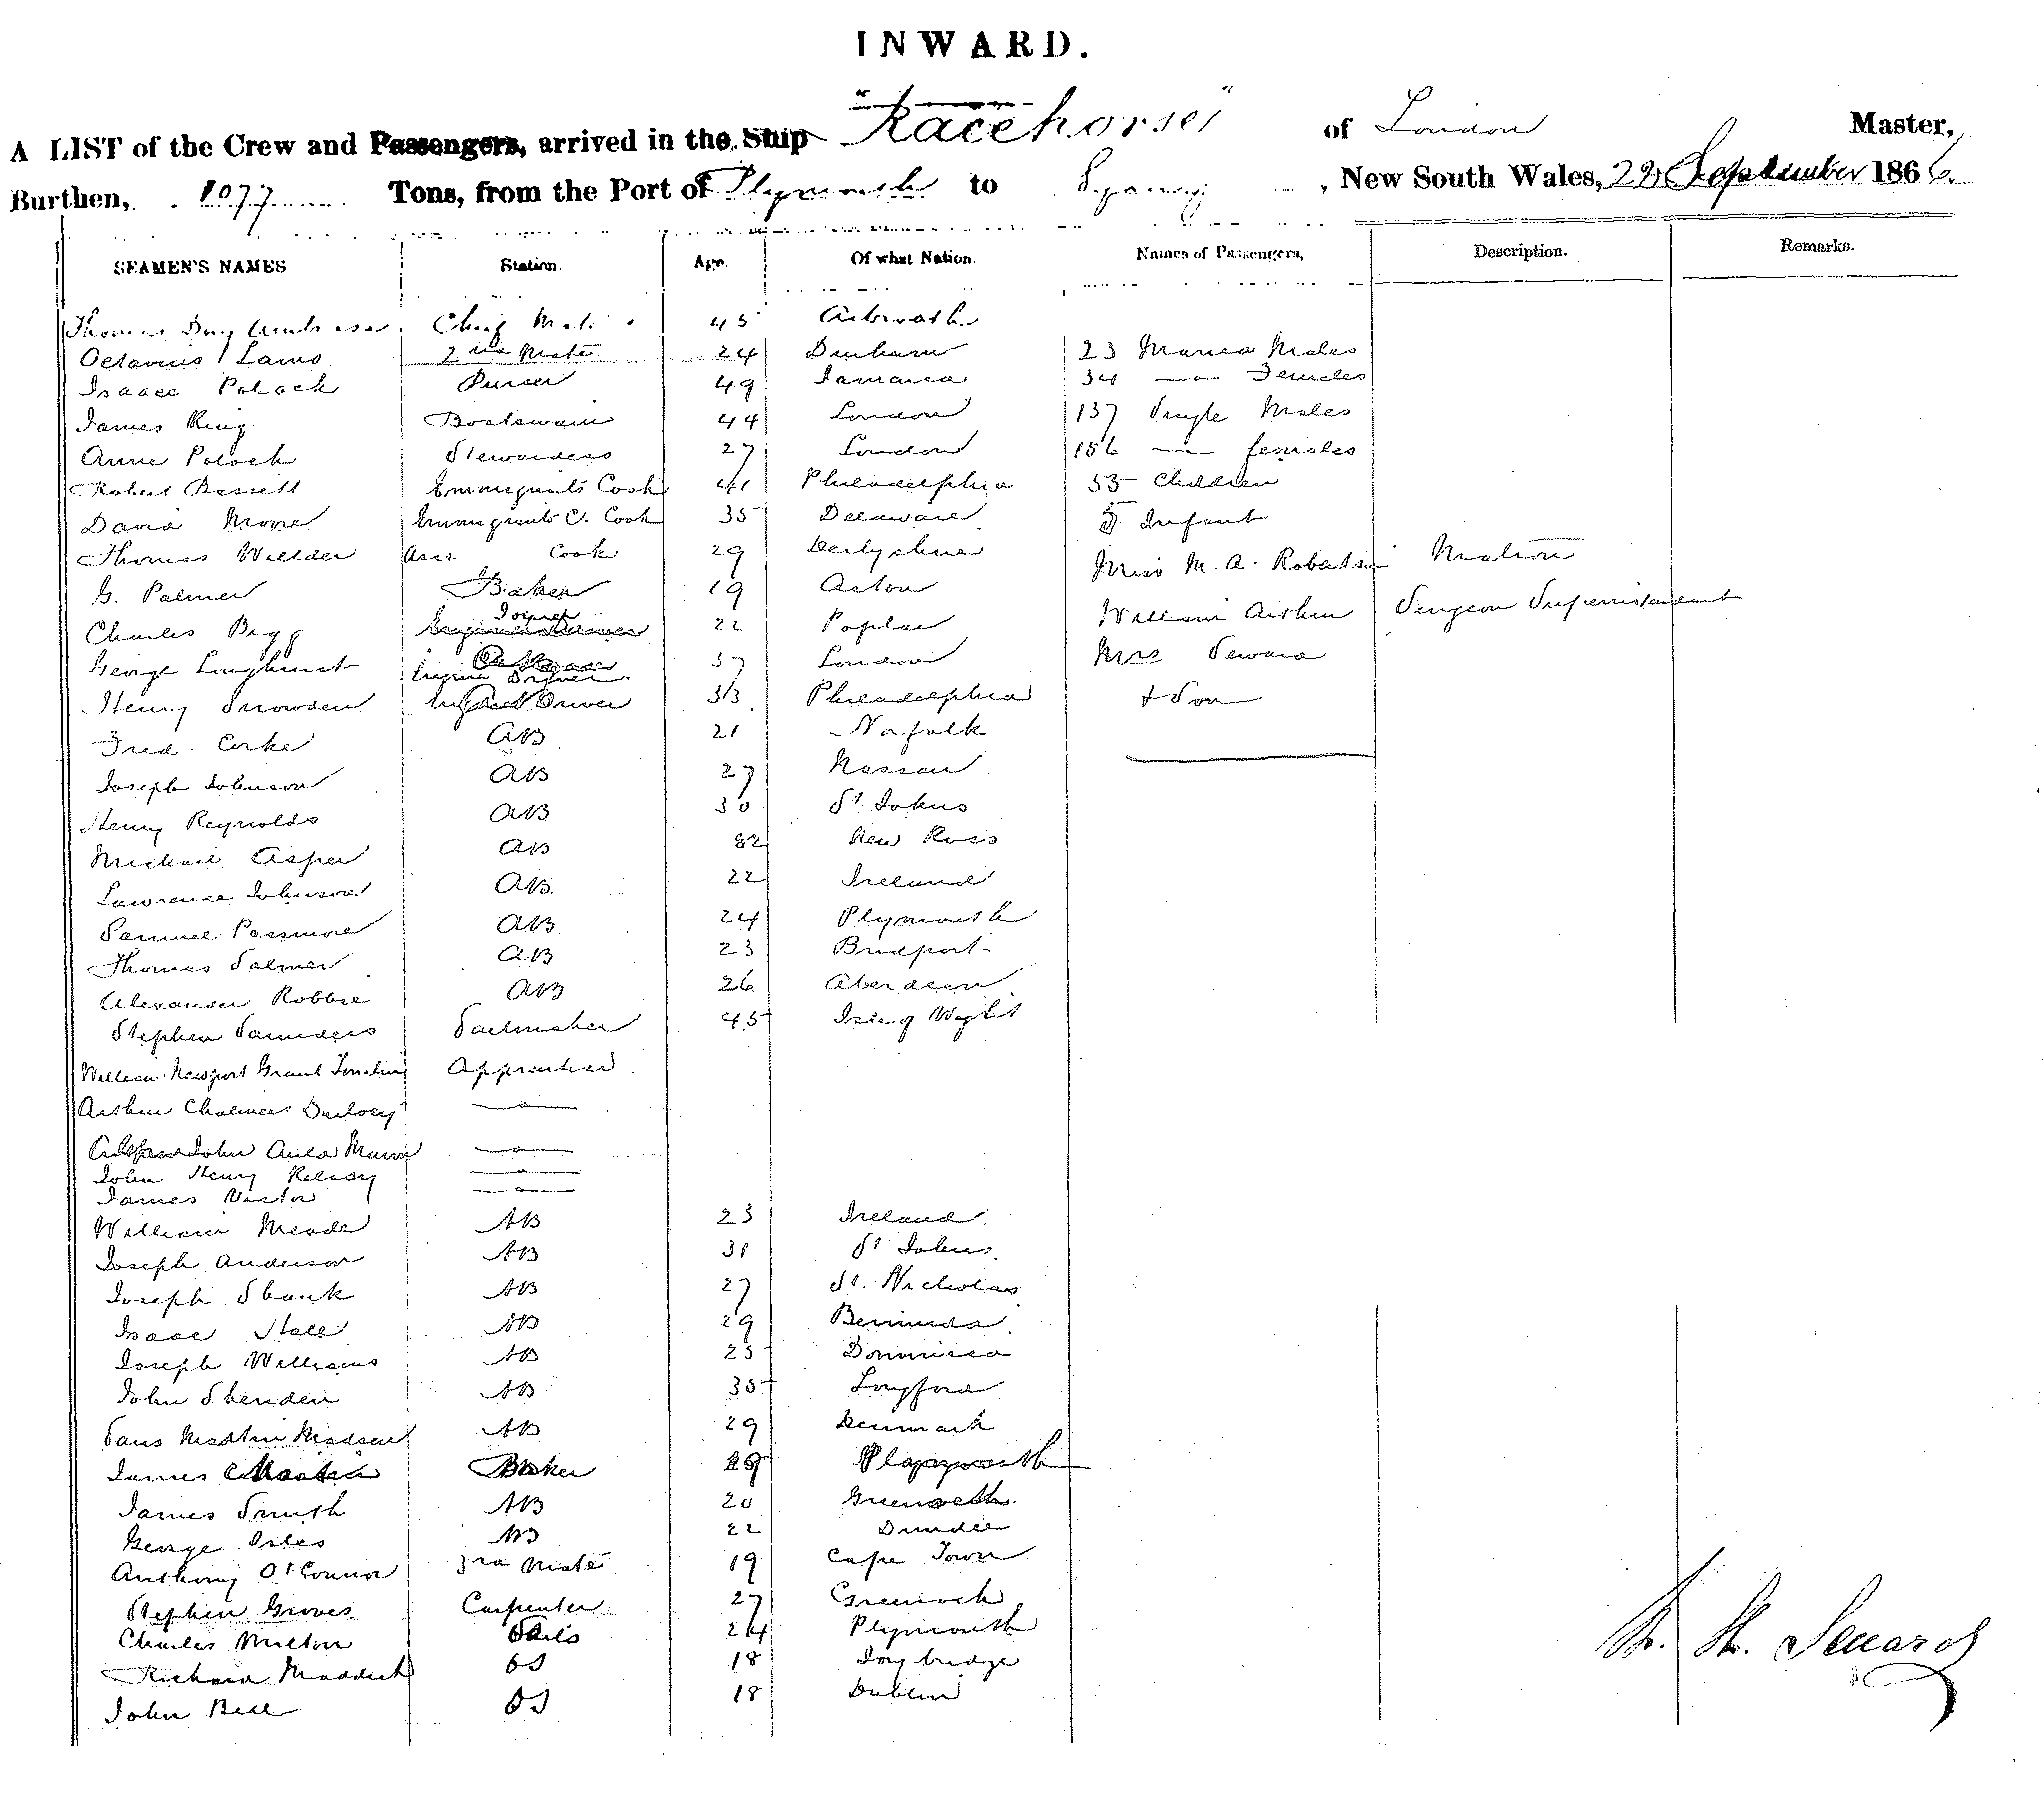 INWARD.
A LIST of the Crew and Passengers, arrived in the Ship "Racehorse" of London Master,
Burthen, 1077 Tons, from the Port of Plymouth to Sydney, New South Wales, September 1866.
SEAMEN'S NAMES Station. Age. Of what Nation. Names of Passengers, Description. Remarks.
Thomas Chief Mate 45 Arbroath
Octavius Laws 2nd Mate 24 Durham 23 Married Males
Isaac Polack Purser 49 Jamaica 34 — Females
James King Boatswain 44 London 137 Single Males
Anne Polack Stewardess 27 London 156 — females
Robert Bassett Emmigrants Cook 41 Philadelphia 53 Children
David Moore Emmigrants C. Cook 35 Delaware Infant
Thomas Willder Cook 29 Derbyshire Miss M. A. Robertson Matron
G. Palmer Baker 19 Acton
Charles Bigg Joiner 22 Poplar William Arthur Surgeon Superintendent
George Longhurst 37 London Mrs Seward
Henry Snowden Driver 33 Philadelphia & Son
Fred. Corke AB 21 Norfolk
Joseph Johnson AB 27 Nassau
Henry Reynolds AB 30 St. Johns
Michael Asper AB 22 New Ross
Lawrence Johnson AB 22 Ireland
Samuel Passmore AB 24 Plymouth
Thomas Salmer AB 23 Bridport
Alexander Robbie AB 26 Aberdeen
Stephen Saunders Sailmaker 45 Isle of Wight
William Newport Grant Apprentice
Arthur Chalmers —
John —
John Henry Kelway —
James Victor —
William Meade AB 23 Ireland
Joseph Anderson AB 31 St Johns
Joseph Shank AB 27 St. Nicholas
Isaac Hall AB 29 Bermuda
Joseph Williams AB 25 Dominica
John Sheridan AB 35 Longford
Martin Madsen AB 29 Denmark
James Baker Plymouth
James Smith AB 20 Greenwich
George Isles AB 22 Dundee
Anthony O'Connor 3rd Mate 19 Cape Town
Stephen Groves Carpenter 27 Greenock
Charles Milton 24 Plymouth
Richard Maddick OS 18 Ivybridge
John Bell OS 18 Dublin
Seward